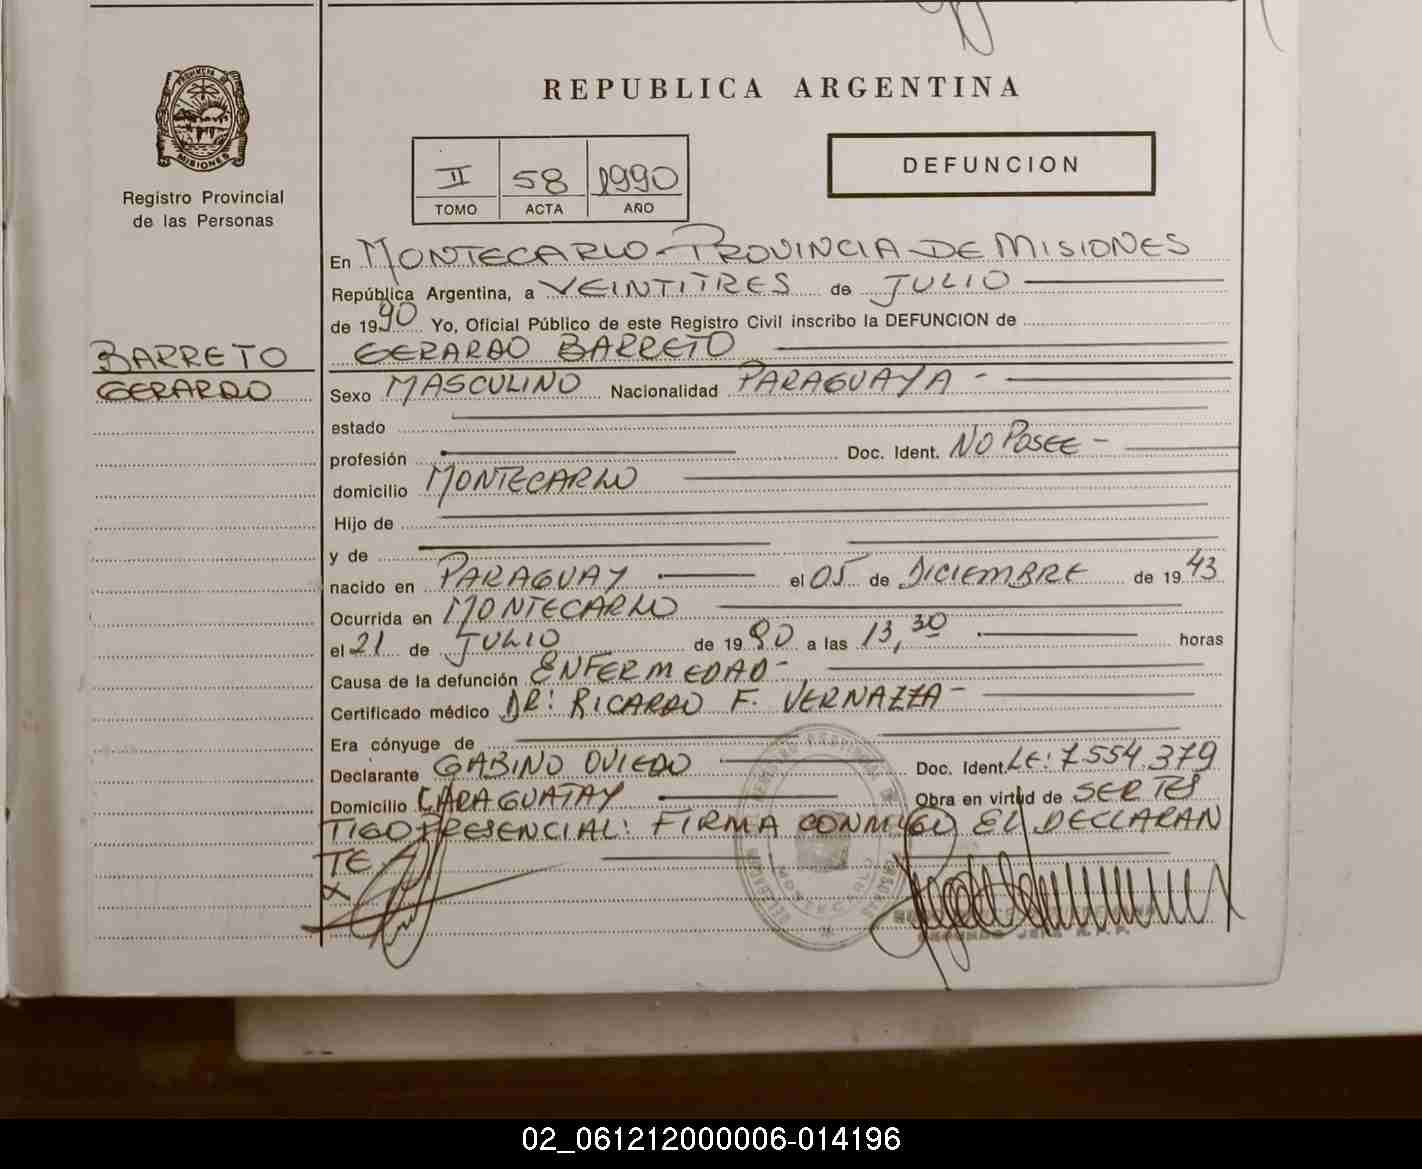 PROVINCIA DE
MISIONES
Registro Provincial
de las Personas
REPUBLICA ARGENTINA
II 58 1990
TOMO ACTA AÑO
DEFUNCION
En MONTECARLO - PROVINCIA DE MISIONES
República Argentina, a VEINTITRES de JULIO
de 1990 Yo, Oficial Público de este Registro Civil inscribo la DEFUNCION de
GERARDO BARRETO
BARRETO
GERARDO
Sexo MASCULINO Nacionalidad PARAGUAYA -
estado
profesión Doc. Ident. NO POSEE -
domicilio MONTECARLO
Hijo de
y de
nacido en PARAGUAY el 05 de DICIEMBRE de 1943
Ocurrida en MONTECARLO
el 21 de JULIO de 1990 a las 13,30 horas
Causa de la defunción ENFERMEDAD -
Certificado médico DR: RICARDO F. VERNAZZA -
Era cónyuge de
Declarante GABINO OVIEDO Doc. Ident. LE: 7.554.379
Domicilio CARAGUATAY Obra en virtud de SER TES
TIGO PRESENCIAL: FIRMA CONMIGO EL DECLARAN
TE
X
02_061212000006-014196